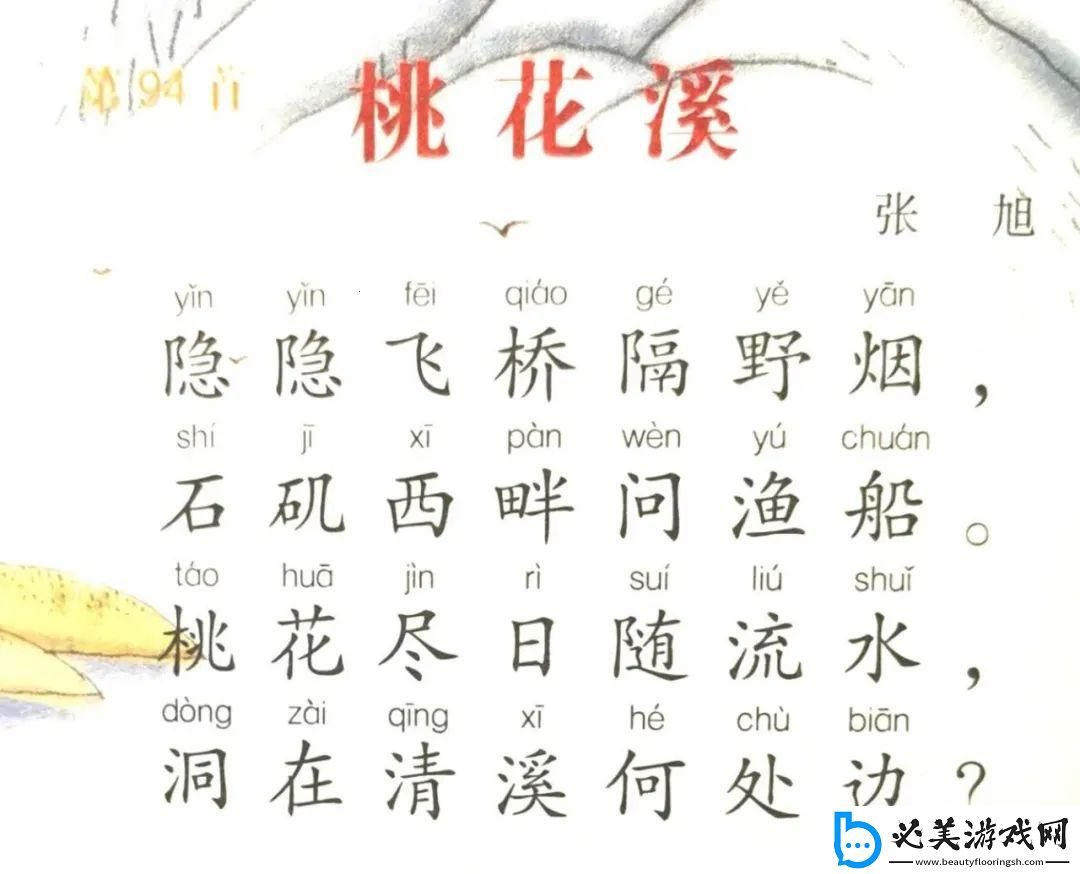 第94首
桃花溪
张 旭
yǐn yǐn fēi qiáo gé yě yān
隐隐飞桥隔野烟，
shí jī xī pàn wèn yú chuán
石矶西畔问渔船。
táo huā jìn rì suí liú shuǐ
桃花尽日随流水，
dòng zài qīng xī hé chù biān
洞在清溪何处边？
必美游戏网
www.beautyflooringsh.com